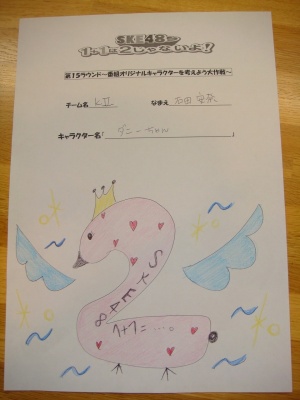 SKE48の
1+1は2じゃないよ!
第15ラウンド〜番組オリジナルキャラクターを考えよう大作戦〜
チーム名 KⅡ なまえ 石田 安奈
キャラクター名( ダニーちゃん )
SKE48
1+1=…。